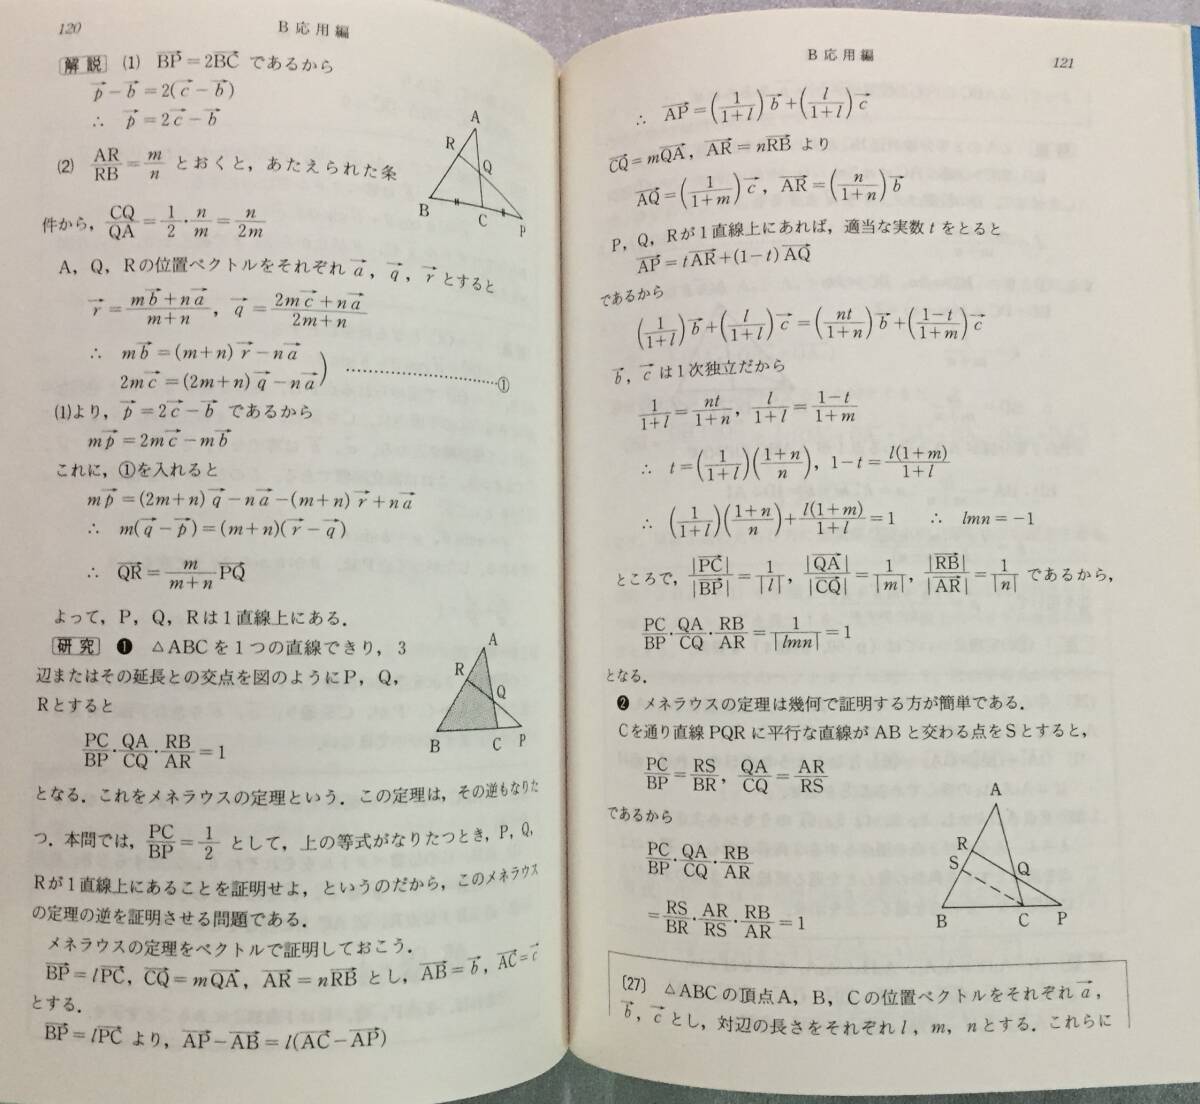 120
B応用編
解説 (1) $\overrightarrow{BP}=2\overrightarrow{BC}$ であるから
$\vec{p}-\vec{b}=2(\vec{c}-\vec{b})$
∴ $\vec{p}=2\vec{c}-\vec{b}$
(2) $\frac{AR}{RB}=\frac{m}{n}$ とおくと，あたえられた条
件から，$\frac{CQ}{QA}=\frac{1}{2}\cdot\frac{n}{m}=\frac{n}{2m}$
A
R
Q
B
C
P
A，Q，Rの位置ベクトルをそれぞれ $\vec{a}$，$\vec{q}$，$\vec{r}$ とすると
$\vec{r}=\frac{m\vec{b}+n\vec{a}}{m+n}$，$\vec{q}=\frac{2m\vec{c}+n\vec{a}}{2m+n}$
∴ $m\vec{b}=(m+n)\vec{r}-n\vec{a}$
$2m\vec{c}=(2m+n)\vec{q}-n\vec{a}$ ) ……………………①
(1)より，$\vec{p}=2\vec{c}-\vec{b}$ であるから
$m\vec{p}=2m\vec{c}-m\vec{b}$
これに，①を入れると
$m\vec{p}=(2m+n)\vec{q}-n\vec{a}-(m+n)\vec{r}+n\vec{a}$
∴ $m(\vec{q}-\vec{p})=(m+n)(\vec{r}-\vec{q})$
∴ $\overrightarrow{QR}=\frac{m}{m+n}\overrightarrow{PQ}$
よって，P，Q，Rは1直線上にある．
研究 ❶ △ABCを1つの直線できり，3
辺またはその延長との交点を図のようにP，Q，
Rとすると
$\frac{PC}{BP}\cdot\frac{QA}{CQ}\cdot\frac{RB}{AR}=1$
A
R
Q
B
C
P
となる．これをメネラウスの定理という．この定理は，その逆もなりた
つ．本問では，$\frac{PC}{BP}=\frac{1}{2}$ として，上の等式がなりたつとき，P，Q，
Rが1直線上にあることを証明せよ，というのだから，このメネラウス
の定理の逆を証明させる問題である．
メネラウスの定理をベクトルで証明しておこう．
$\overrightarrow{BP}=l\overrightarrow{PC}$，$\overrightarrow{CQ}=m\overrightarrow{QA}$，$\overrightarrow{AR}=n\overrightarrow{RB}$ とし，$\overrightarrow{AB}=\vec{b}$，$\overrightarrow{AC}=\vec{c}$
とする．
$\overrightarrow{BP}=l\overrightarrow{PC}$ より，$\overrightarrow{AP}-\overrightarrow{AB}=l(\overrightarrow{AC}-\overrightarrow{AP})$
B応用編
121
∴ $\overrightarrow{AP}=\left(\frac{1}{1+l}\right)\vec{b}+\left(\frac{l}{1+l}\right)\vec{c}$
$\overrightarrow{CQ}=m\overrightarrow{QA}$，$\overrightarrow{AR}=n\overrightarrow{RB}$ より
$\overrightarrow{AQ}=\left(\frac{1}{1+m}\right)\vec{c}$，$\overrightarrow{AR}=\left(\frac{n}{1+n}\right)\vec{b}$
P，Q，Rが1直線上にあれば，適当な実数 $t$ をとると
$\overrightarrow{AP}=t\overrightarrow{AR}+(1-t)\overrightarrow{AQ}$
であるから
$\left(\frac{1}{1+l}\right)\vec{b}+\left(\frac{l}{1+l}\right)\vec{c}=\left(\frac{nt}{1+n}\right)\vec{b}+\left(\frac{1-t}{1+m}\right)\vec{c}$
$\vec{b}$，$\vec{c}$ は1次独立だから
$\frac{1}{1+l}=\frac{nt}{1+n}$，$\frac{l}{1+l}=\frac{1-t}{1+m}$
∴ $t=\left(\frac{1}{1+l}\right)\left(\frac{1+n}{n}\right)$，$1-t=\frac{l(1+m)}{1+l}$
∴ $\left(\frac{1}{1+l}\right)\left(\frac{1+n}{n}\right)+\frac{l(1+m)}{1+l}=1$ ∴ $lmn=-1$
ところで，$\frac{|\overrightarrow{PC}|}{|\overrightarrow{BP}|}=\frac{1}{|l|}$，$\frac{|\overrightarrow{QA}|}{|\overrightarrow{CQ}|}=\frac{1}{|m|}$，$\frac{|\overrightarrow{RB}|}{|\overrightarrow{AR}|}=\frac{1}{|n|}$ であるから，
$\frac{PC}{BP}\cdot\frac{QA}{CQ}\cdot\frac{RB}{AR}=\frac{1}{|lmn|}=1$
となる．
❷ メネラウスの定理は幾何で証明する方が簡単である．
Cを通り直線PQRに平行な直線がABと交わる点をSとすると，
$\frac{PC}{BP}=\frac{RS}{BR}$，$\frac{QA}{CQ}=\frac{AR}{RS}$
であるから
$\frac{PC}{BP}\cdot\frac{QA}{CQ}\cdot\frac{RB}{AR}$
$=\frac{RS}{BR}\cdot\frac{AR}{RS}\cdot\frac{RB}{AR}=1$
A
R
S
Q
B
C
P
(27) △ABCの頂点A，B，Cの位置ベクトルをそれぞれ $\vec{a}$，
$\vec{b}$，$\vec{c}$ とし，対辺の長さをそれぞれ $l$，$m$，$n$ とする．これらに